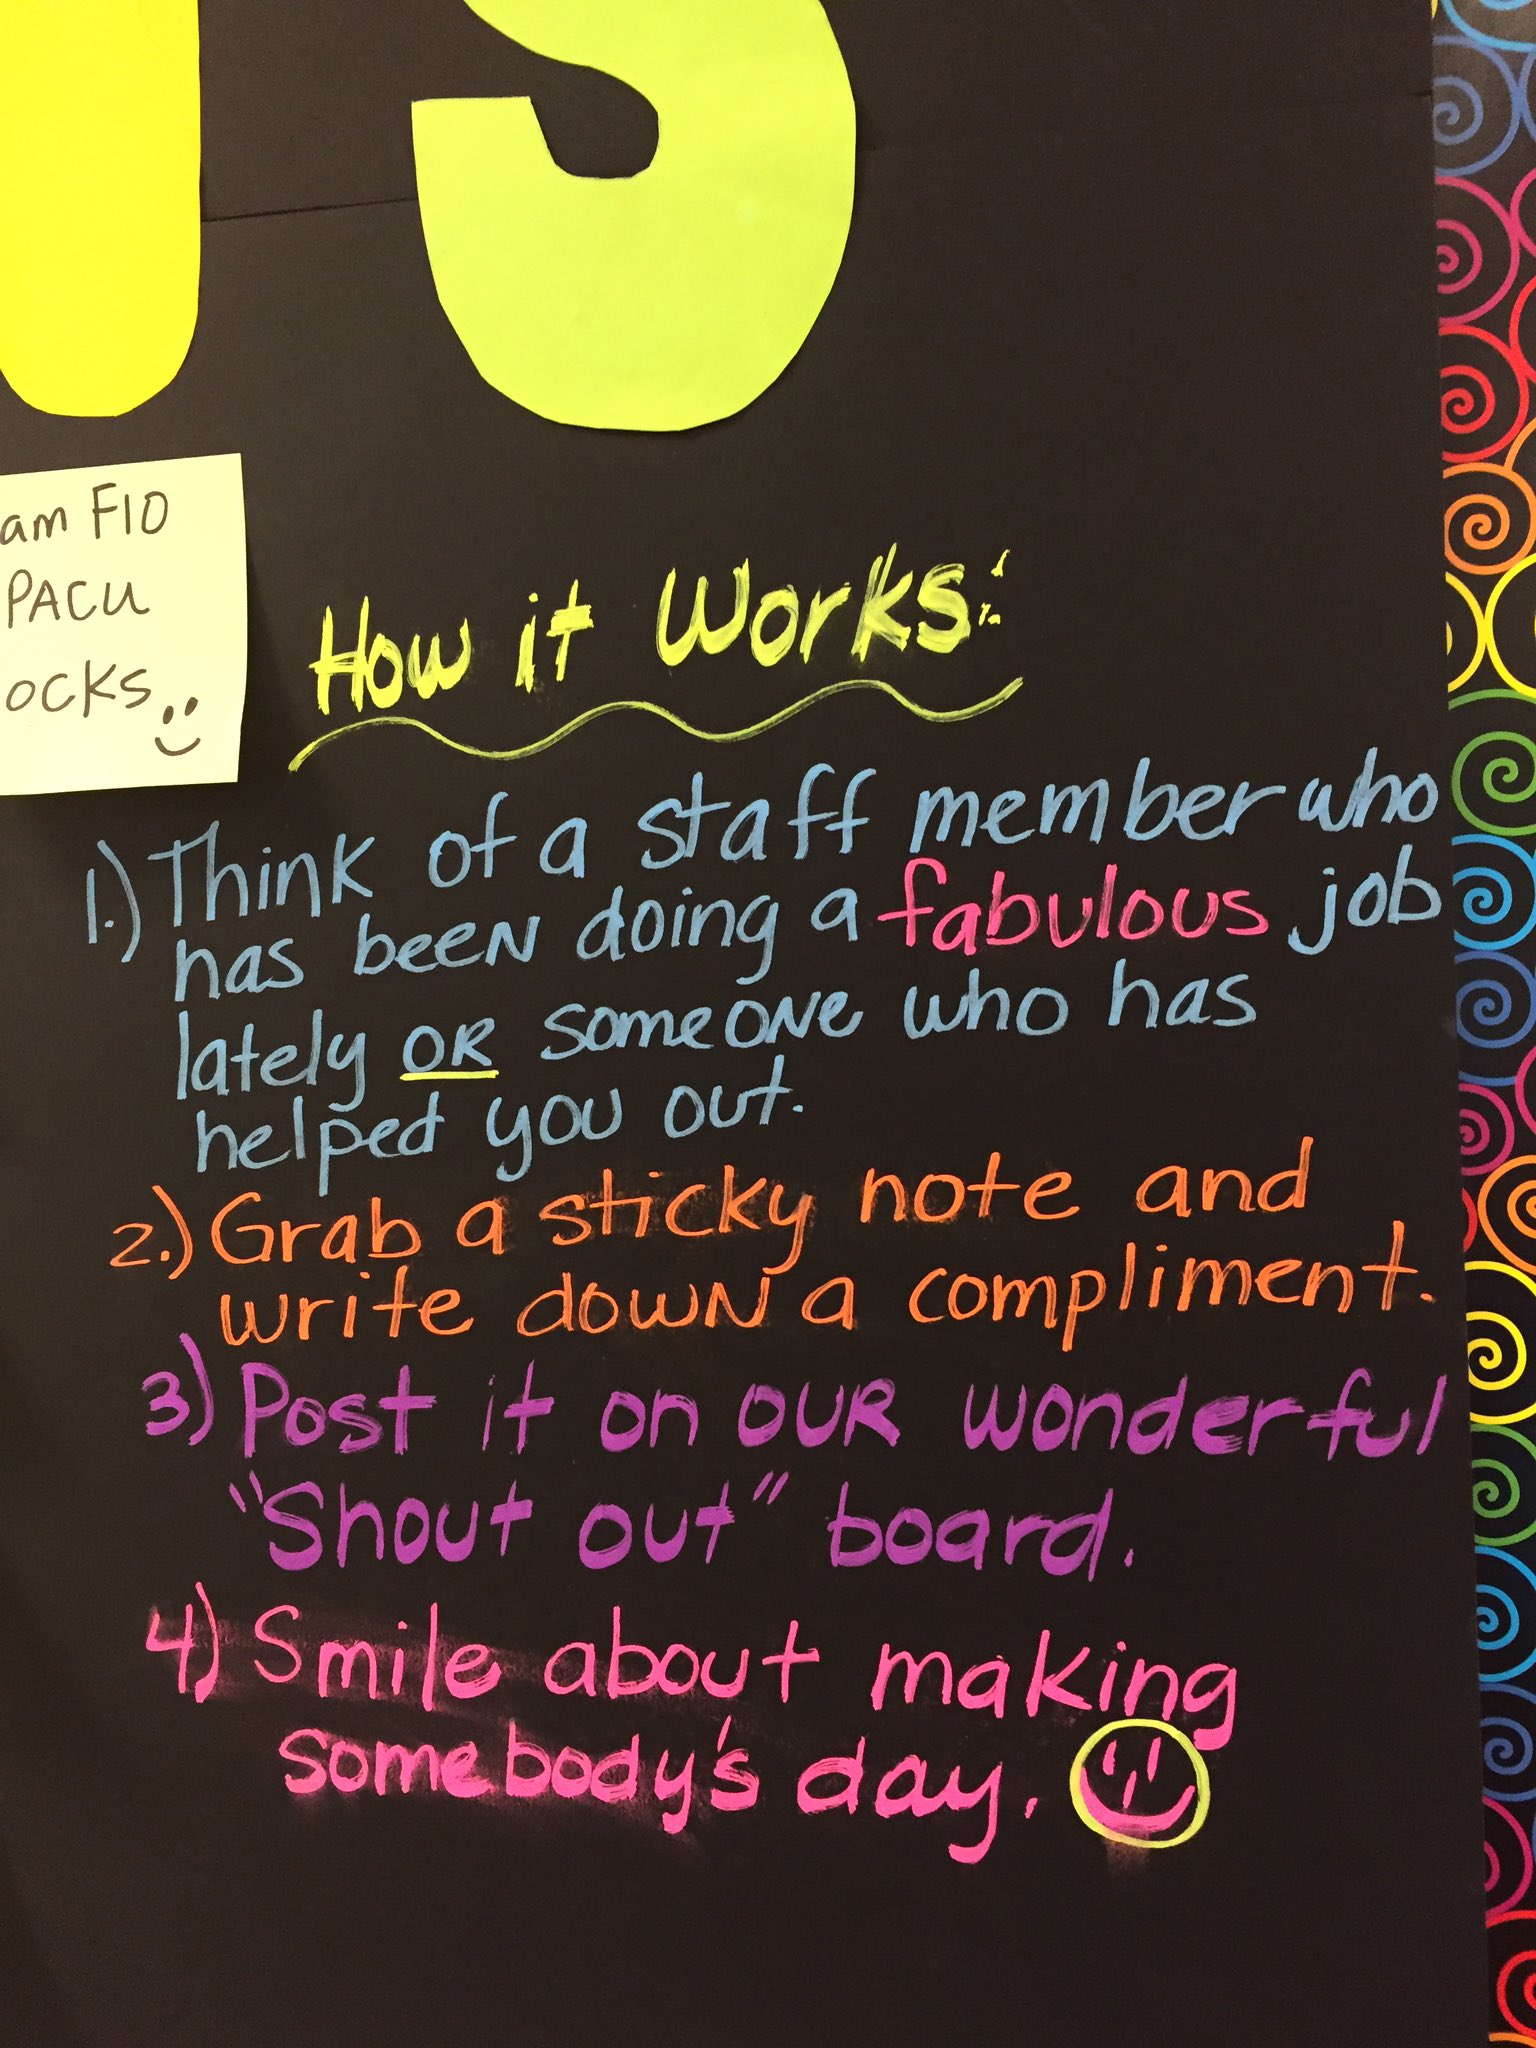 S
am F10
PACU
ocks
How it Works:
1.) Think of a staff member who
has been doing a fabulous job
lately OR someone who has
helped you out.
2.) Grab a sticky note and
write down a compliment.
3) Post it on our wonderful
"Shout out" board.
4) Smile about making
somebody's day.